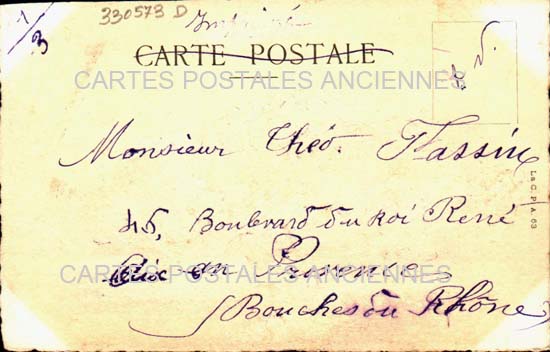 1/3
330573 D
Imprimé
CARTE POSTALE
CARTES POSTALES ANCIENNES
Monsieur Théo. Tassin
45, Boulevard du Roi René
Aix en Provence
CARTES POSTALES ANCIENNES
Bouches du Rhône
L & C. P. A. 63